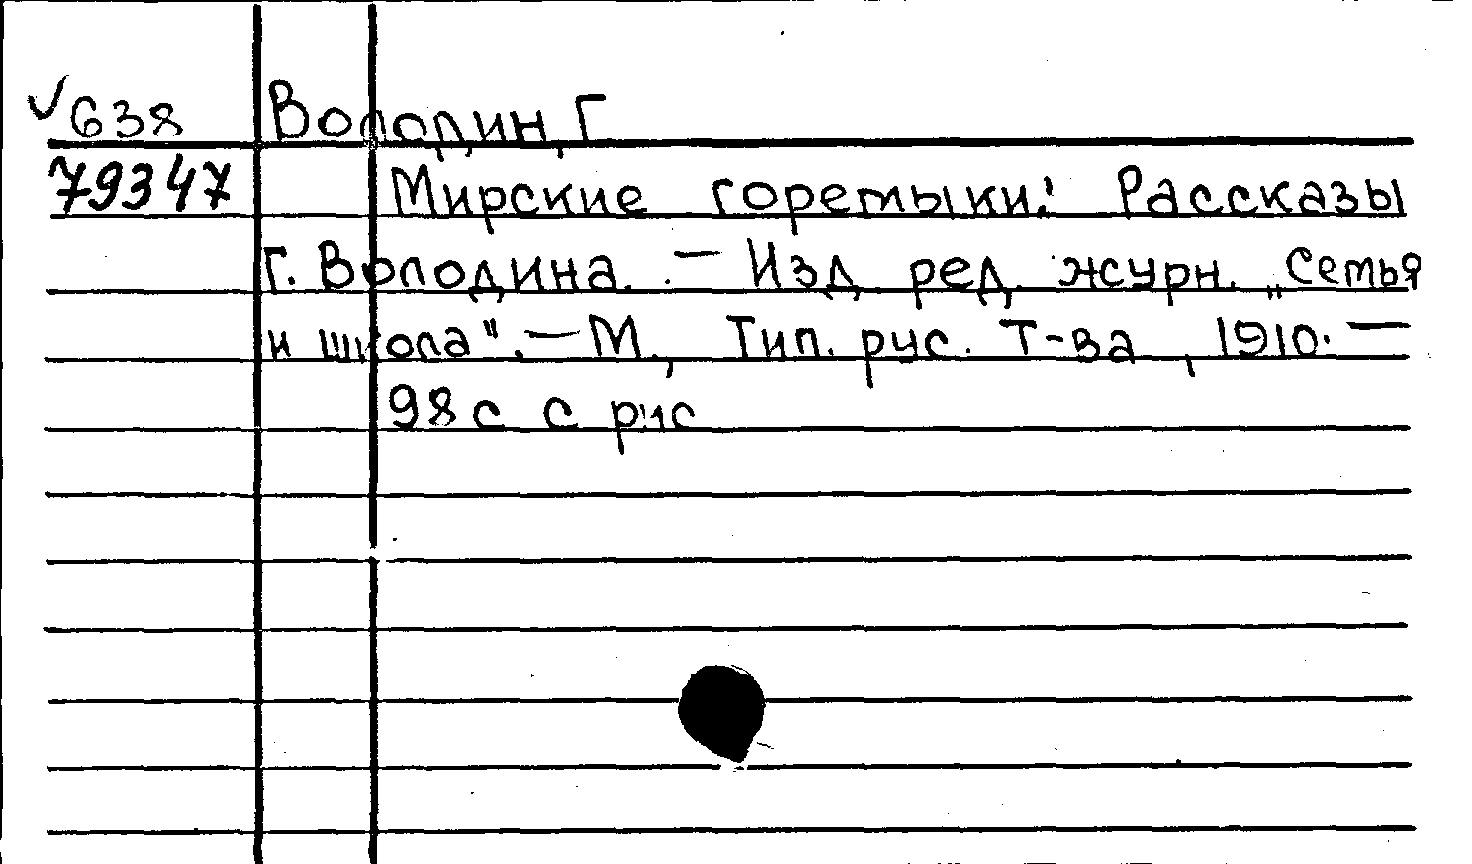 √638 Володин, Г
79347 Мирские горемыки: Рассказы
Г. Володина. – Изд. ред. журн. „Семья
и школа". – М., Тип. рус. Т-ва, 1910. –
98 с с рис